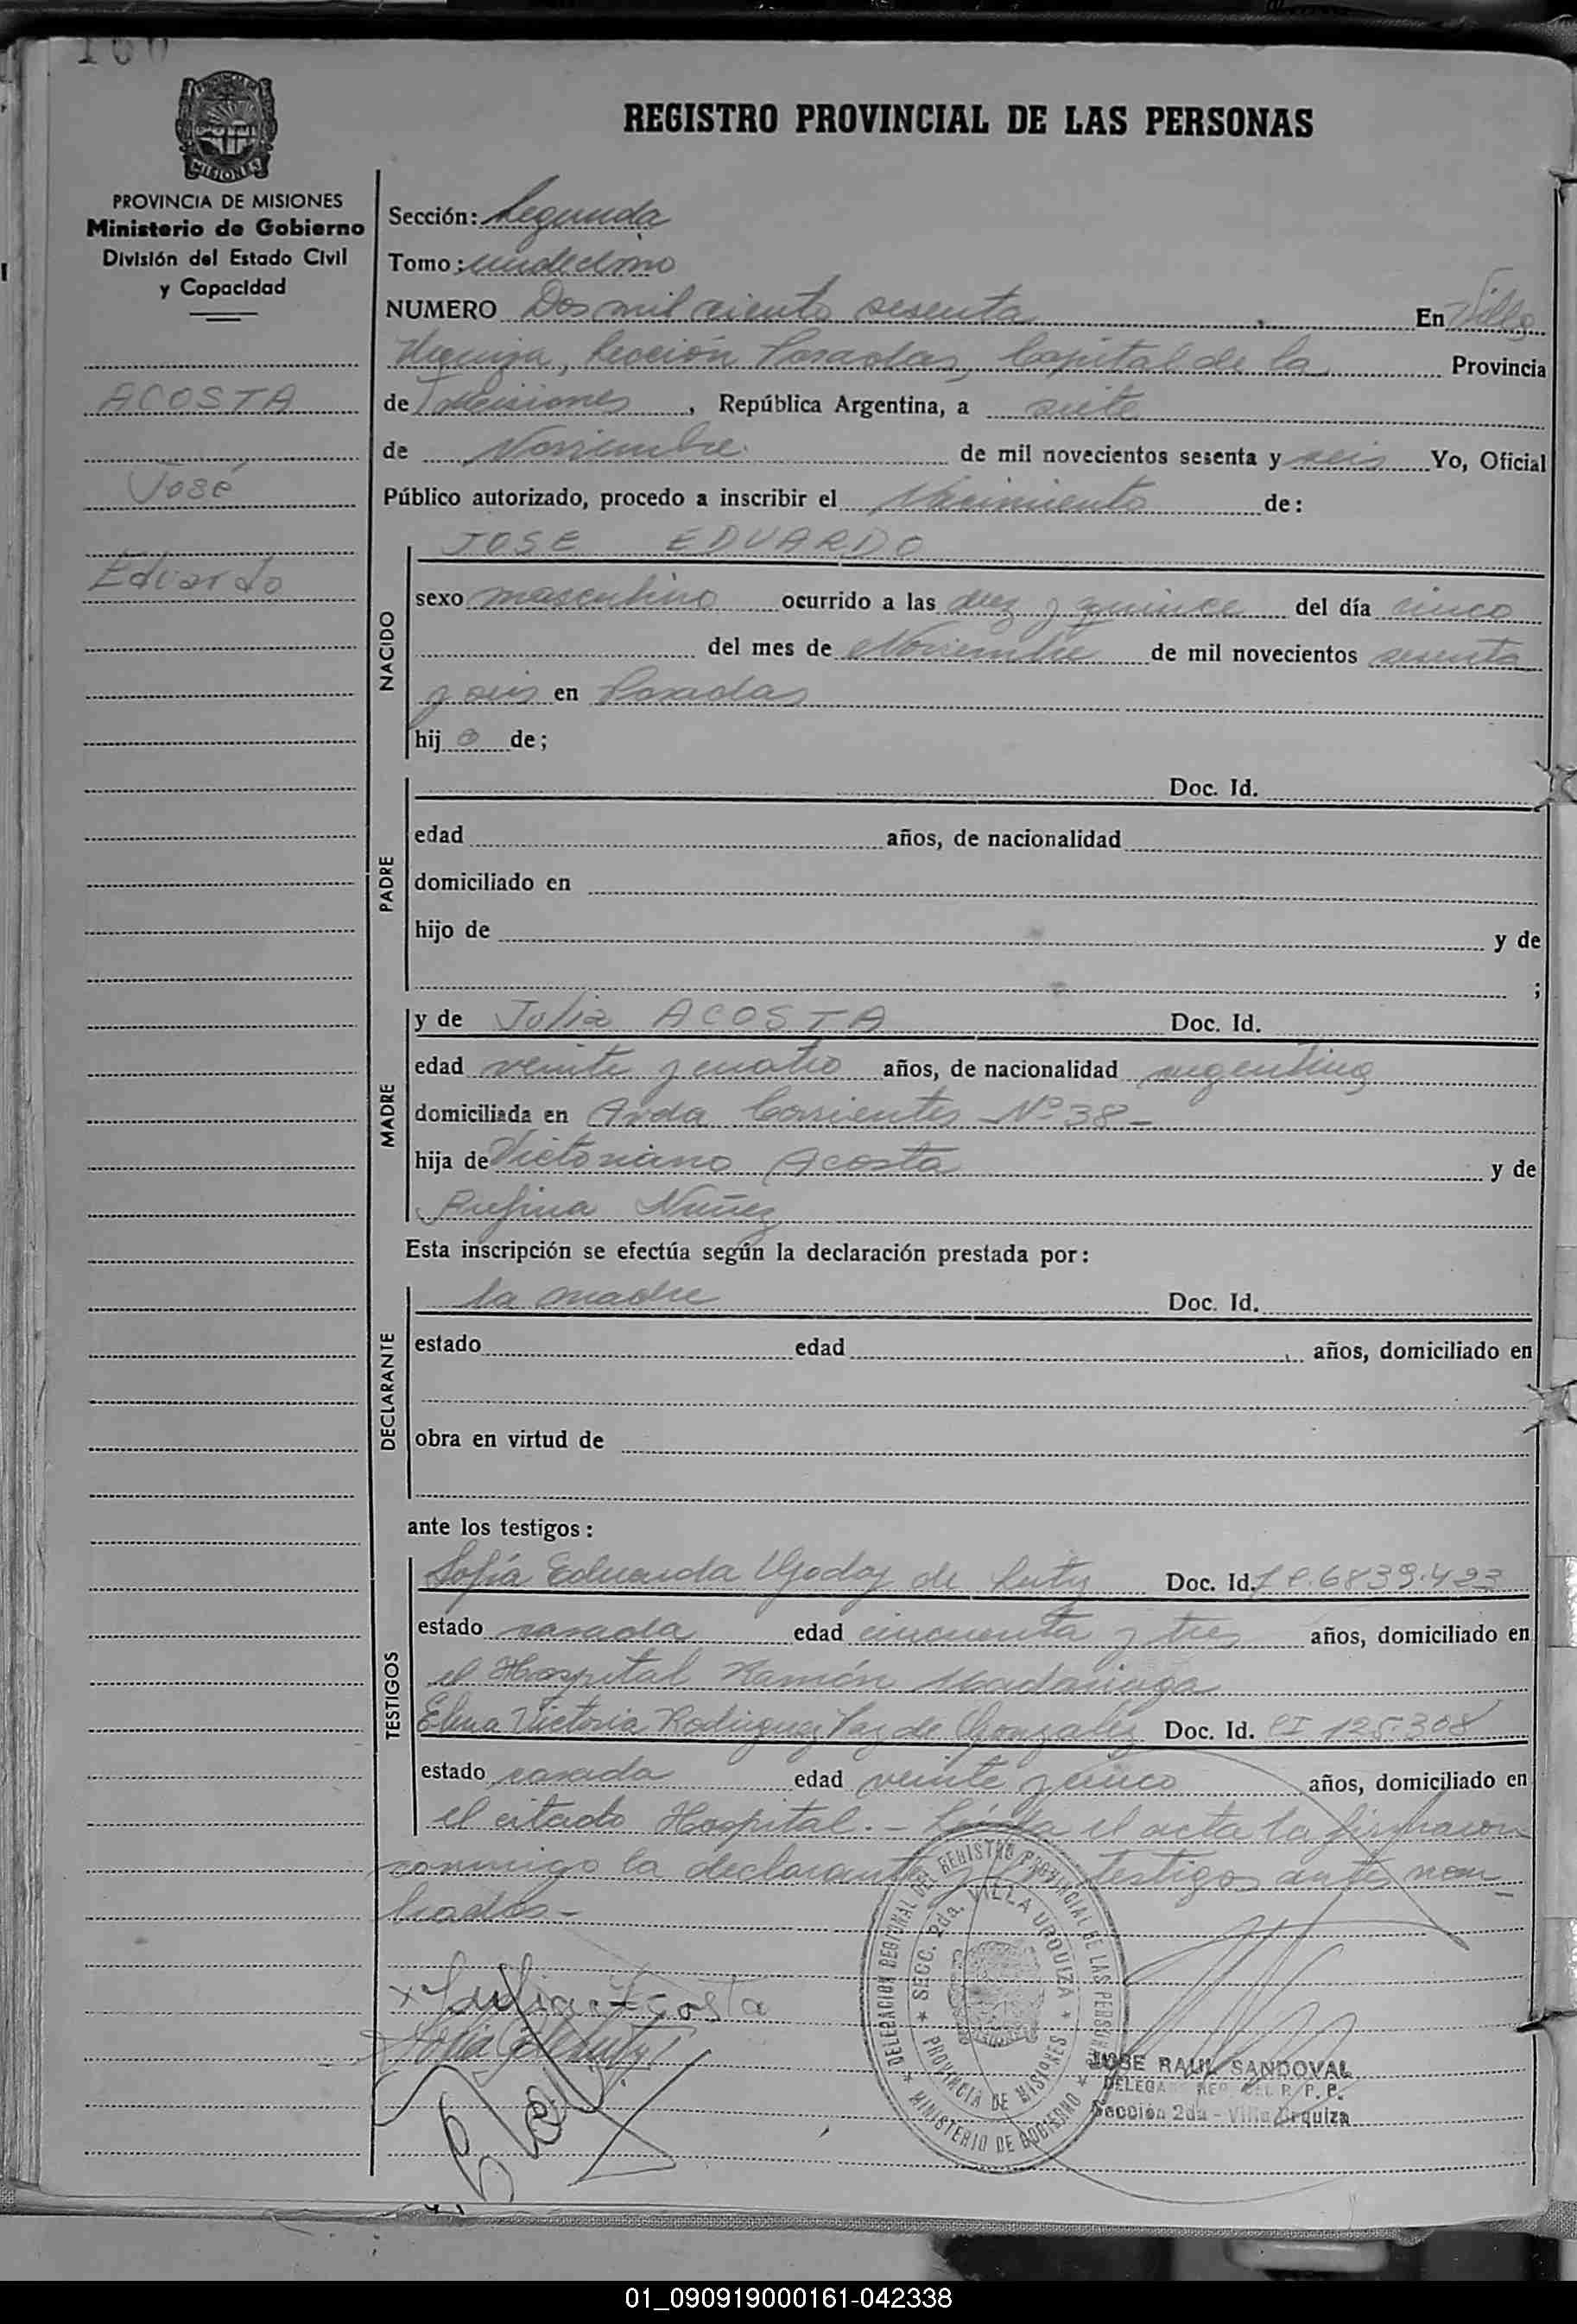 160
REGISTRO PROVINCIAL DE LAS PERSONAS
MISIONES
PROVINCIA DE MISIONES
Ministerio de Gobierno
División del Estado Civil
y Capacidad
ACOSTA
José
Eduardo
Sección: Segunda
Tomo: undecimo
NUMERO Dos mil ciento sesenta En Villa
Urquiza, Sección Posadas, Capital de la Provincia
de Misiones, República Argentina, a siete
de Noviembre de mil novecientos sesenta y seis Yo, Oficial
Público autorizado, procedo a inscribir el Nacimiento de:
NACIDO
JOSE EDUARDO
sexo masculino ocurrido a las diez y quince del día cinco
del mes de Noviembre de mil novecientos sesenta
y seis en Posadas
hij o de;
PADRE
Doc. Id.
edad años, de nacionalidad
domiciliado en
hijo de y de
;
MADRE
y de Julia ACOSTA Doc. Id.
edad veinte y cuatro años, de nacionalidad argentina
domiciliada en Avda Corrientes Nº 38-
hija de Victoriano Acosta y de
Rufina Nuñez
Esta inscripción se efectúa según la declaración prestada por:
DECLARANTE
la madre Doc. Id.
estado edad años, domiciliado en
obra en virtud de
ante los testigos:
TESTIGOS
Sofía Eduarda Godoy de Doc. Id. 6839.423
estado casada edad cincuenta y tres años, domiciliado en
el Hospital Ramón Madariaga
Elena Victoria Rodriguez Paz de Gonzalez Doc. Id. CI 125.308
estado casada edad veinte y cinco años, domiciliado en
el citado Hospital.- Leída el acta la firmaron
conmigo la declarante y los testigos antes nom-
brados-
x Julia Acosta
DELEGACION REGIONAL DEL REGISTRO PROVINCIAL DE LAS PERSONAS
SECC. 2da. VILLA URQUIZA
PROVINCIA DE MISIONES
MINISTERIO DE GOBIERNO
JOSE RAUL SANDOVAL
DELEGADO REG. DEL R. P. P.
Sección 2da - Villa Urquiza
01_090919000161-042338